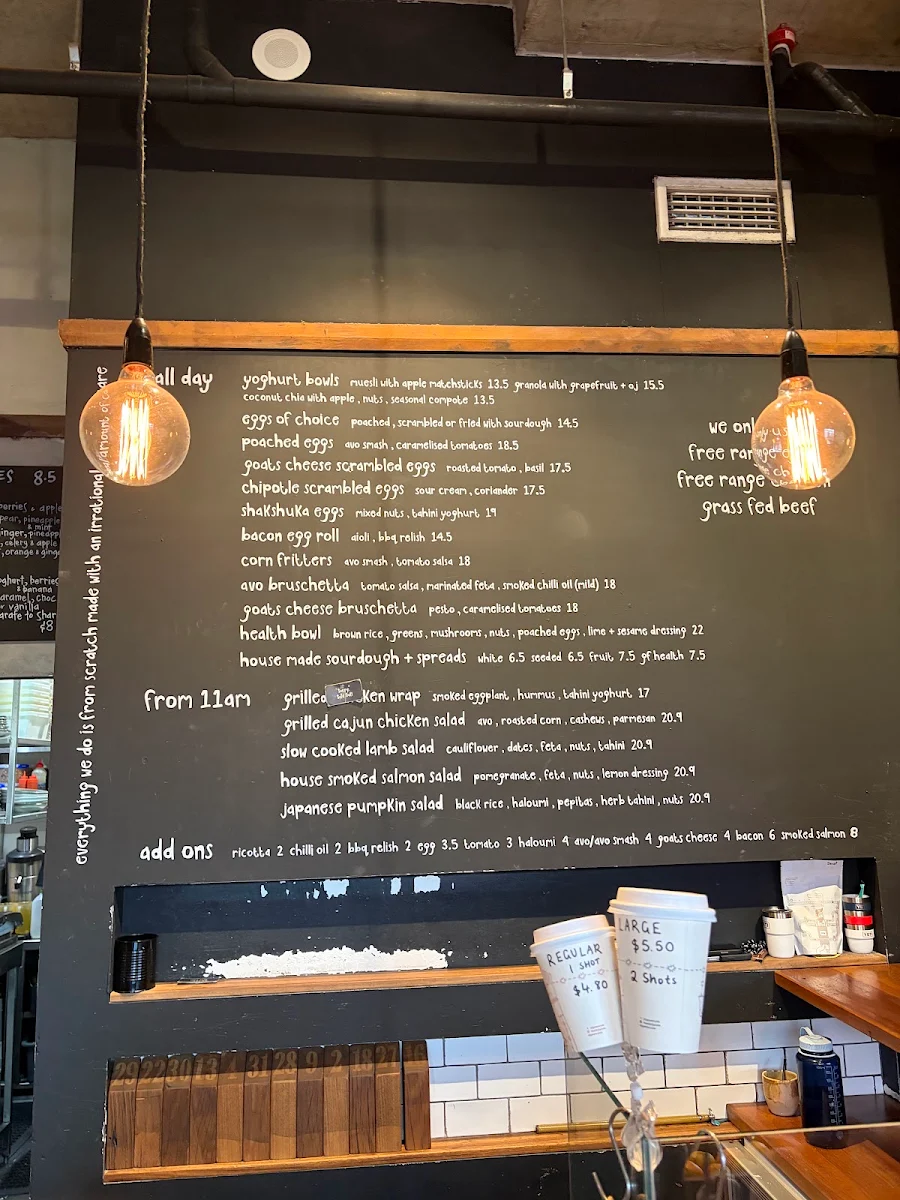 all day
yoghurt bowls muesli with apple matchsticks 13.5 granola with grapefruit + oj 15.5
coconut chia with apple, nuts, seasonal compote 13.5
eggs of choice poached, scrambled or fried with sourdough 14.5
poached eggs avo smash, caramelised tomatoes 18.5
goats cheese scrambled eggs roasted tomato, basil 17.5
chipotle scrambled eggs sour cream, coriander 17.5
shakshuka eggs mixed nuts, tahini yoghurt 19
bacon egg roll aioli, bbq relish 14.5
corn fritters avo smash, tomato salsa 18
avo bruschetta tomato salsa, marinated feta, smoked chilli oil (mild) 18
goats cheese bruschetta pesto, caramelised tomatoes 18
health bowl brown rice, greens, mushrooms, nuts, poached eggs, lime + sesame dressing 22
house made sourdough + spreads white 6.5 seeded 6.5 fruit 7.5 gf health 7.5
from 11am
grilled wrap smoked eggplant, hummus, tahini yoghurt 17
grilled cajun chicken salad avo, roasted corn, cashews, parmesan 20.9
slow cooked lamb salad cauliflower, dates, feta, nuts, tahini 20.9
house smoked salmon salad pomegranate, feta, nuts, lemon dressing 20.9
japanese pumpkin salad black rice, haloumi, pepitas, herb tahini, nuts 20.9
add ons ricotta 2 chilli oil 2 bbq relish 2 egg 3.5 tomato 3 haloumi 4 avo/avo smash 4 goats cheese 4 bacon 6 smoked salmon 8
we only
free range
free range
grass fed beef
everything we do is from scratch made with an irrational amount of care
8.5
& apple
& mint
celery & apple
orange &
berries
& banana
vanilla
$8
REGULAR
1 SHOT
$4.80
LARGE
$5.50
2 Shots
29 22 30 13 31 28 9 2 18 27